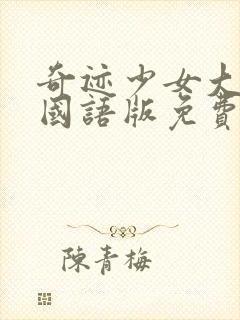 奇迹少女大
國語版免費
陳青梅